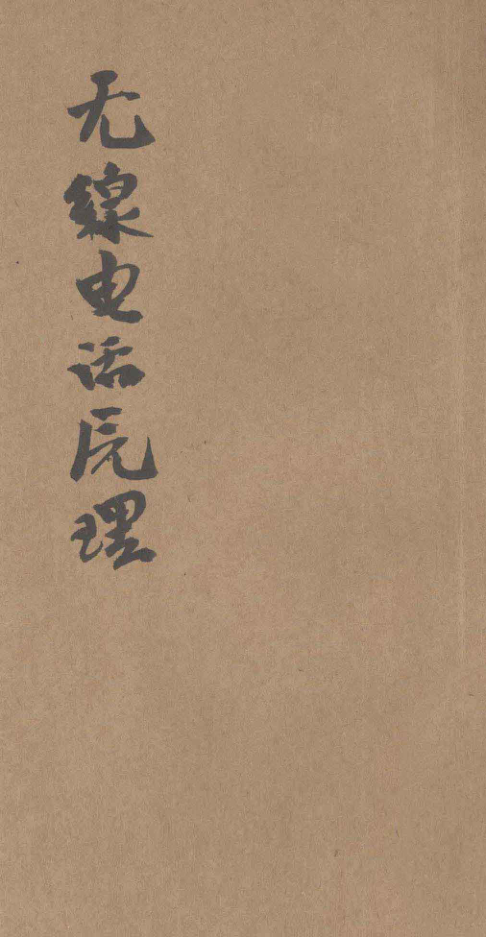 无線电话原理